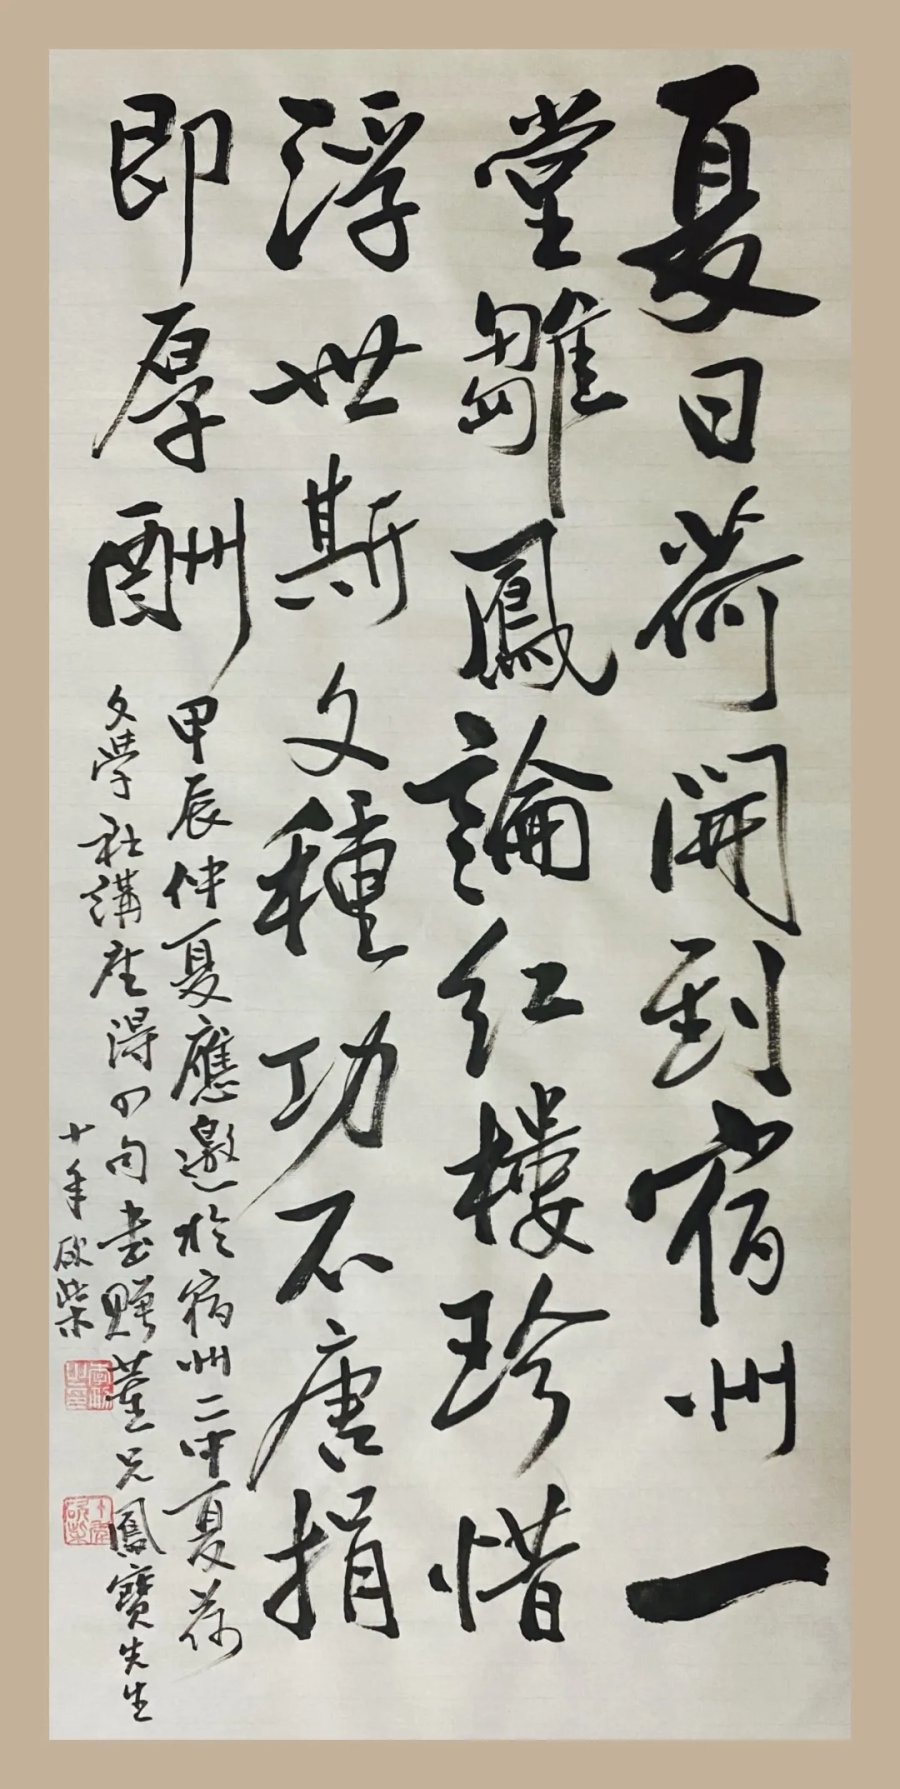 夏日荷開到宿州一
堂雛鳳論红樓珍惜
浮世斯文種功不唐捐
即厚酬
甲辰仲夏應邀於宿州二中夏荷
文學社講座得四句書贈董兄鳳寶先生
十年砍柴